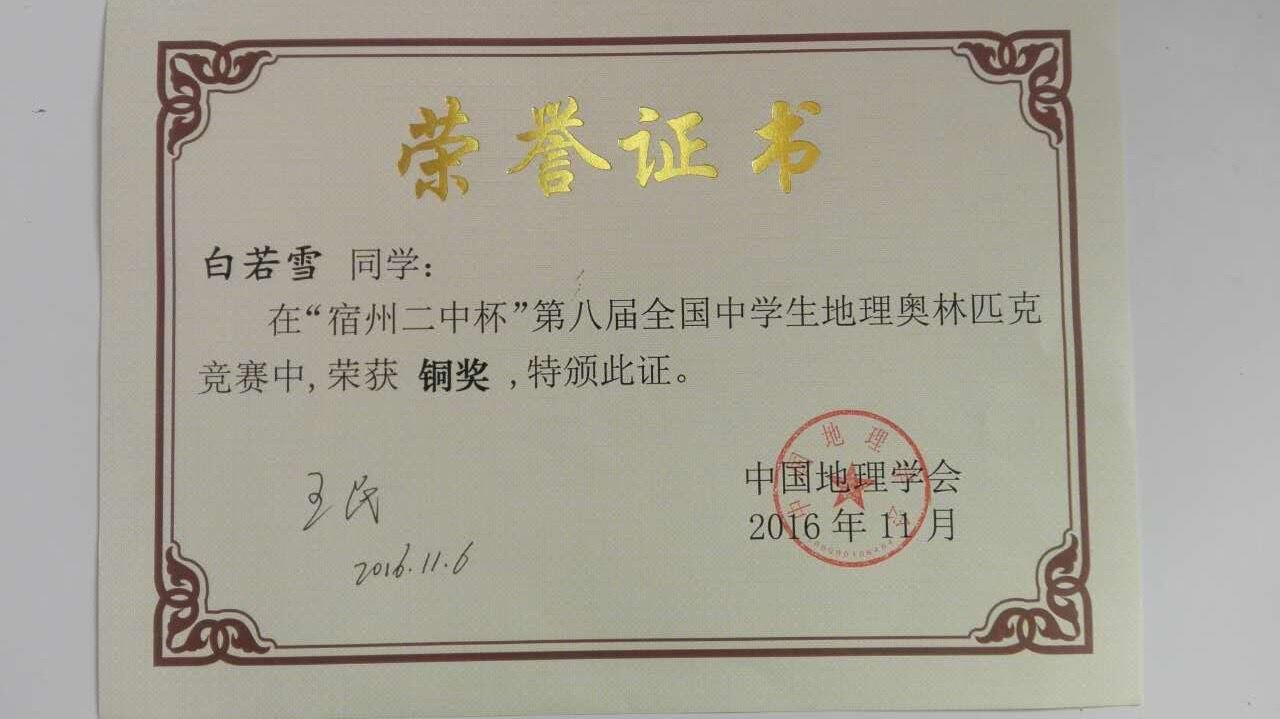 荣誉证书
白若雪 同学：
在“宿州二中杯”第八届全国中学生地理奥林匹克
竞赛中,荣获 铜奖 ,特颁此证。
中国地理学会
中国地理学会
2016 年 11 月
王民
2016.11.6